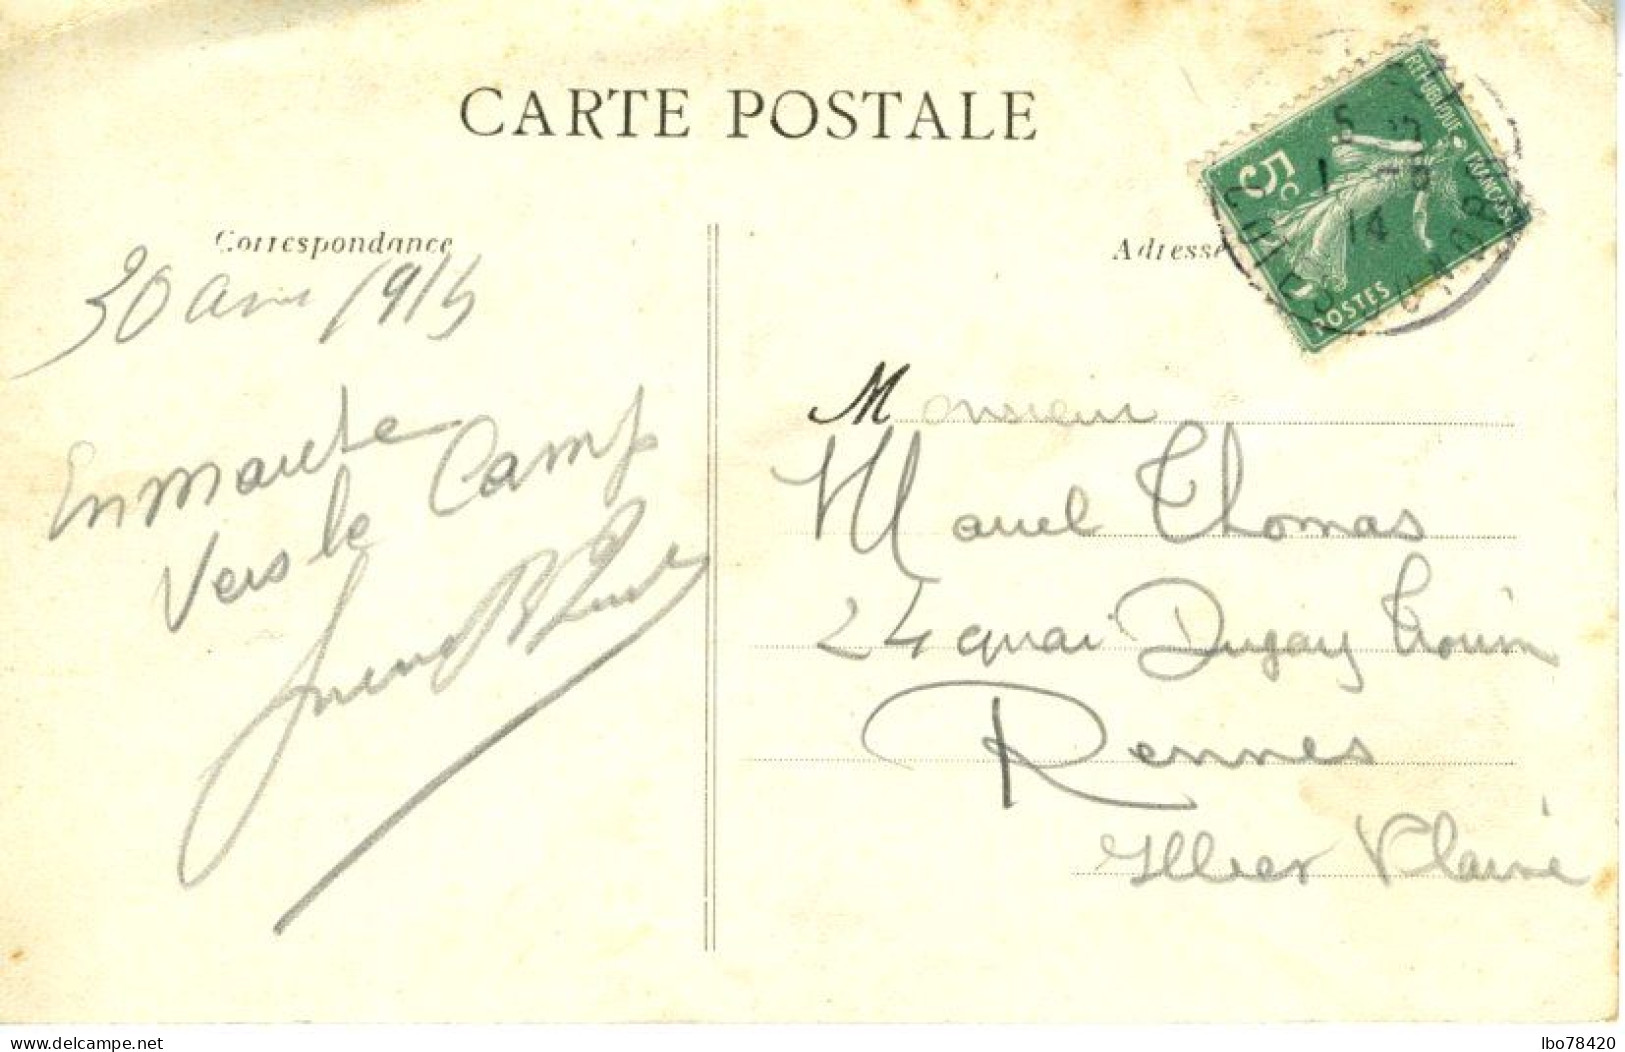 CARTE POSTALE
Correspondance
Adresse
RÉPUBLIQUE FRANÇAISE
5c
POSTES
14
30 avril 191
En route
vers le Camp
Monsieur
Marcel Thomas
24 quai Dugay Trouin
Rennes
Ille et Vilaine
www.delcampe.net
lbo78420